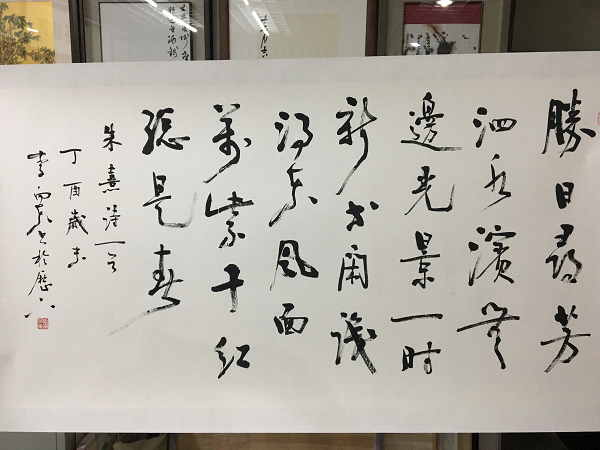 勝日尋芳
泗水濱無
邊光景一时
新等閑識
得東風面
萬紫千紅
總是春
朱熹詩一首
丁酉歲末
李 書於歷下